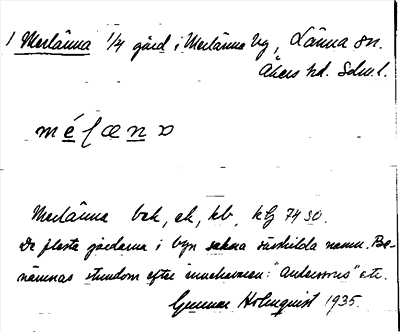 1 Merlänna 1/4 gård i Merlänna by, Länna sn.
Åkers hd. Sdm. l.
Merlänna bek, ek, kb, ktg 7430.
De flesta gårdarna i byn sakna särskilda namn. Be-
nämnas stundom efter innehavaren: "Anderssons" etc.
Gunnar Holmquist 1935.